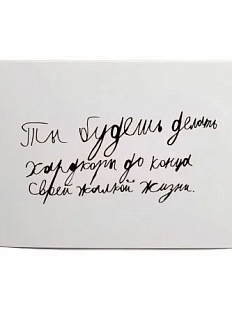 Ты будешь делать
хардкоры до конца
своей жалкой жизни.